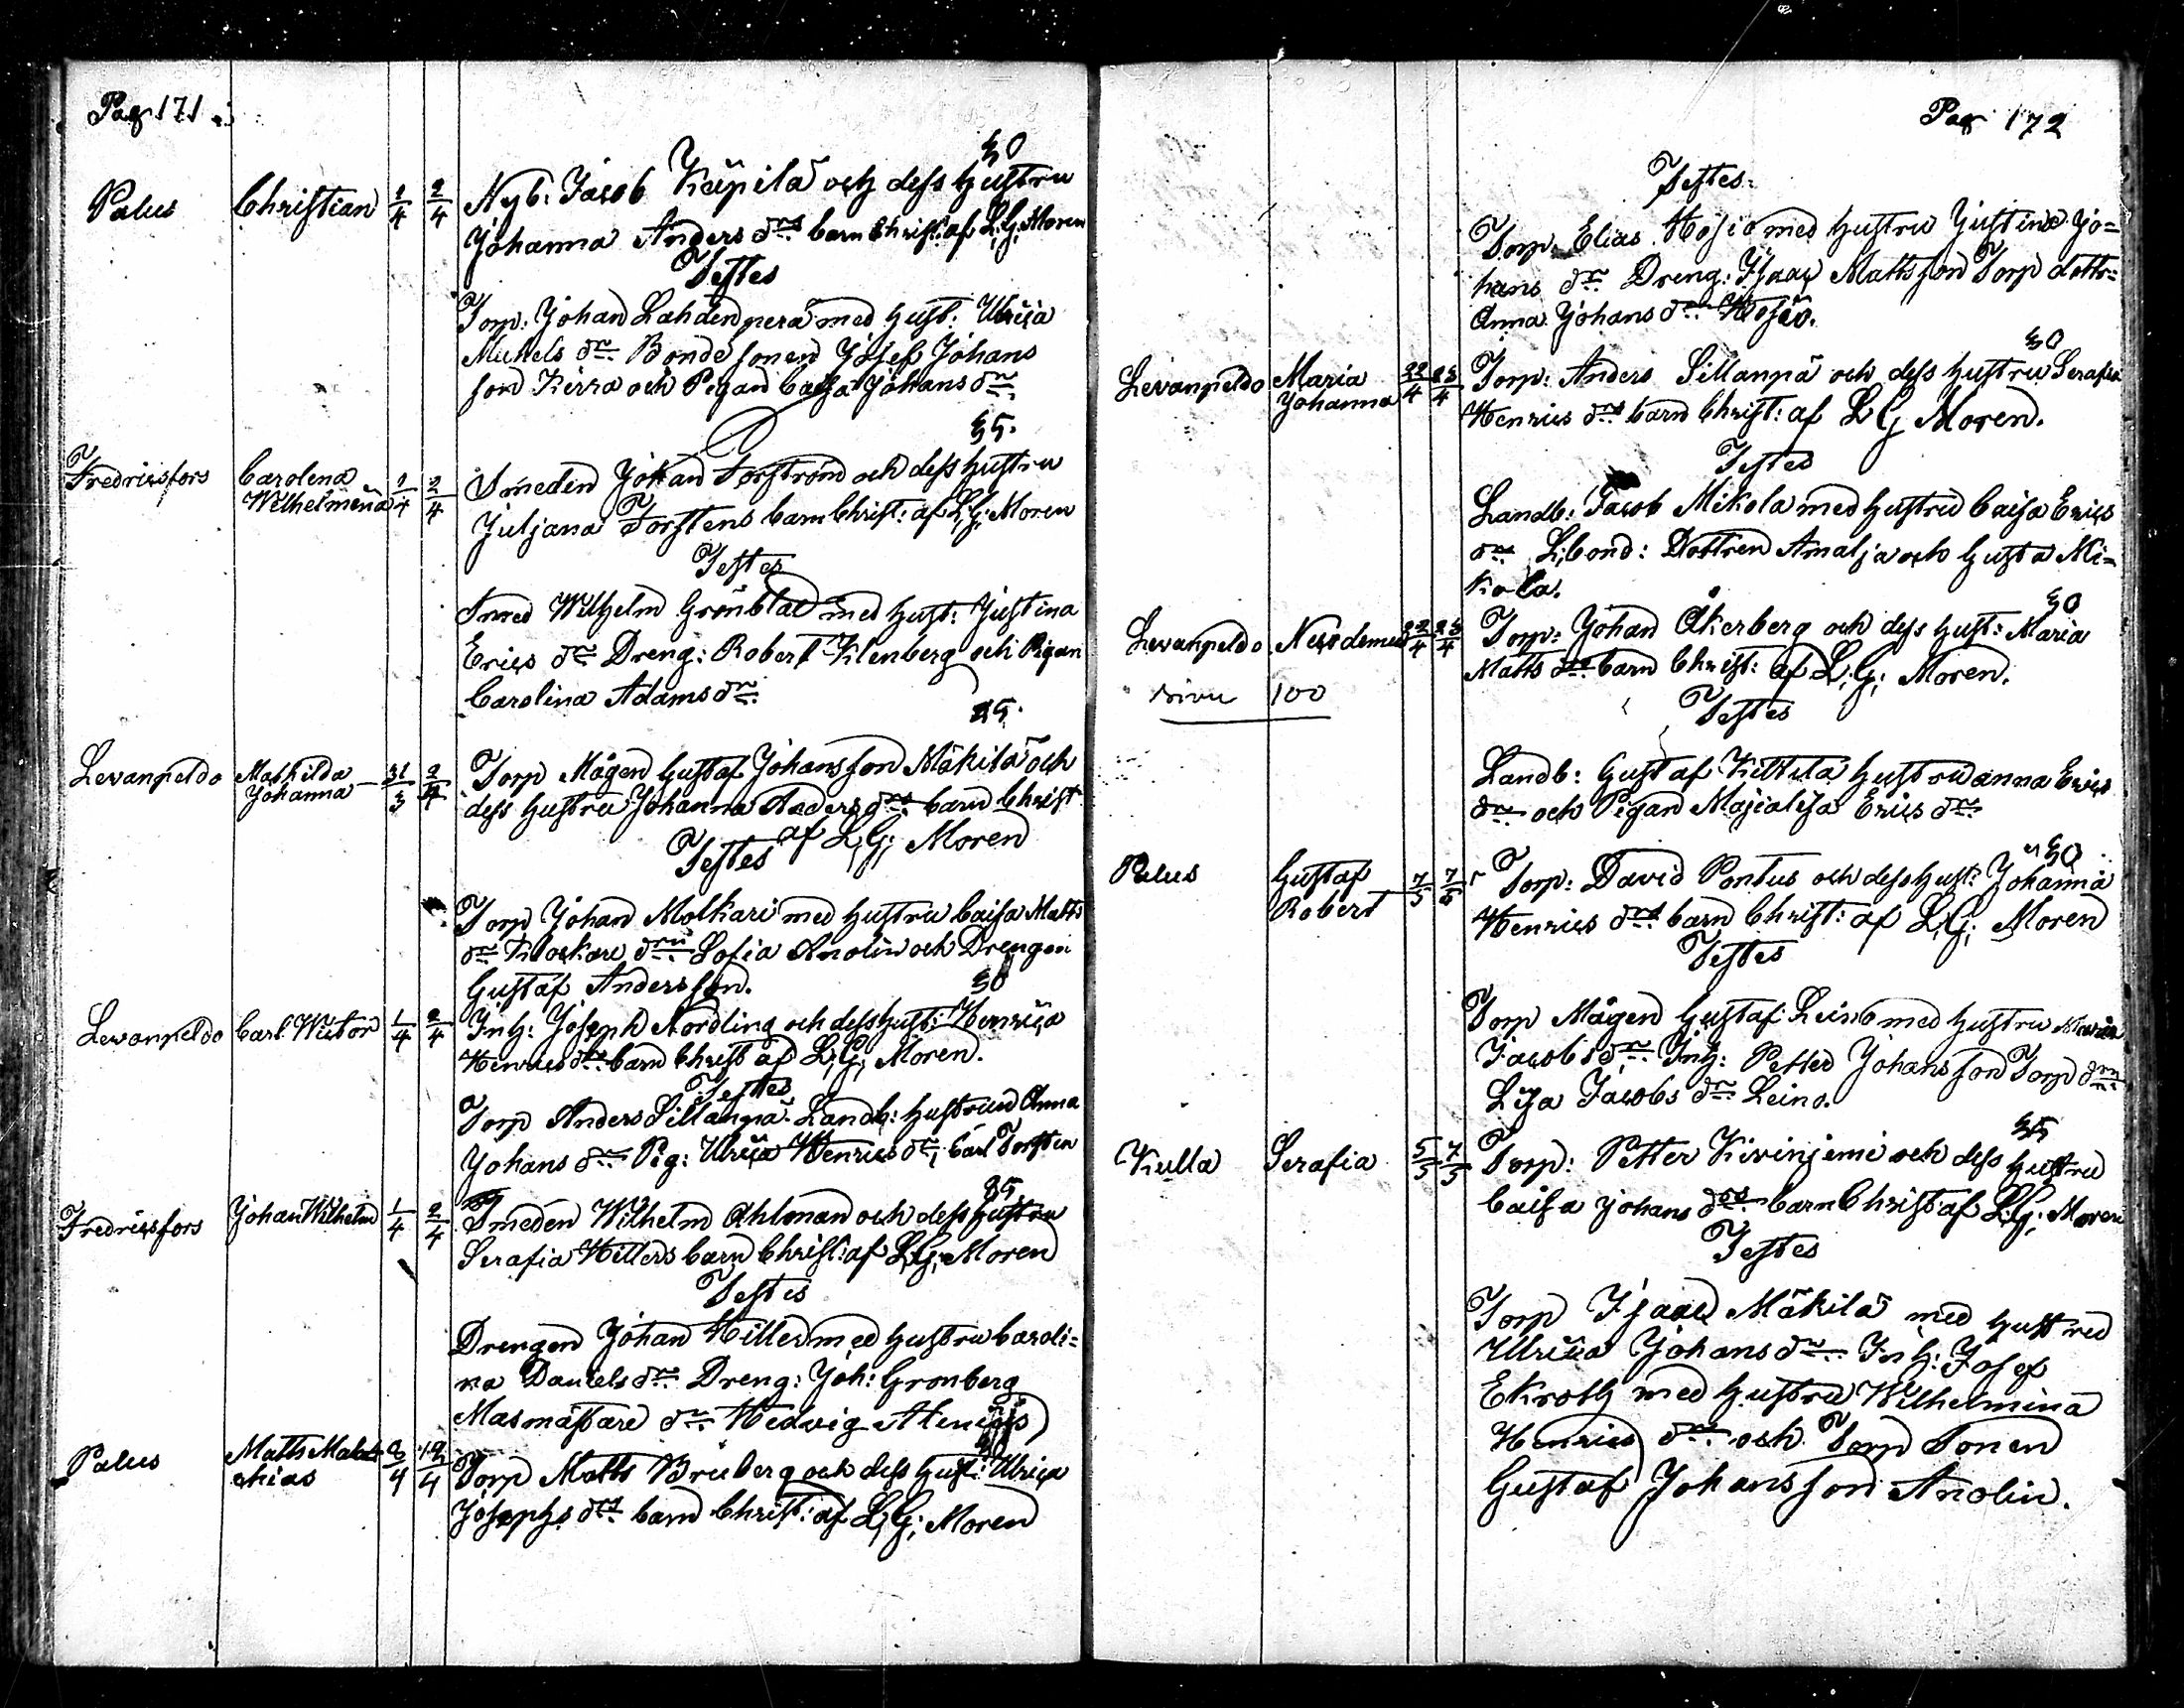 Pag 171
Palus Christian 1/4 2/4 Nyb: Jacob Käpilä och dess Hustru 30
Johanna Anders drs barn Christ: af L,G; Moren
Testes
Torp: Johan Lahdenperä med Hust: Ulrica
Michels dr Bonde sonen Josef Johans
son Kirra och Pigan Caisa Johans dr
35.
Fredriksfors Carolena Wilhelmena 1/4 2/4 Smeden Johan Torström och dess Hustru
Juljana Torstens barn Christ: af L,G; Moren
Testes
Smed Wilhelm Grönblad med Hust: Justina
Erics dr Dreng: Robert Klenberg och Pigan
Carolina Adams dr
25.
Levanpeldo Mathilda Johanna 31/3 2/4 Torp Mågen Gustaf Johansson Mäkilä och
dess Hustru Johanna Anders drs barn Christ
af L,G; Moren
Testes
Torp Johan Molkari med Hustru Caisa Matts
dr Klockare dru Sofia Anolin och Drengen
Gustaf Andersson.
30
Levanpeldo Carl Wictor 1/4 2/4 Inh: Joseph Nordling och dess Hust: Henrica
Henrics drs barn Christ af L,G; Moren.
Testes
Torp Anders Sillanpä. Landb: Hustrun Anna
Johans dr Pig: Ulrica Henrics dr, Carl Torsten
25
Fredricsfors Johan Wilhelm 1/4 2/4 Smeden Wilhelm Ahlman och dess Hustru
Serafia Hillers barn Christ: af L,G; Moren
Testes
Drengen Johan Hiller med Hustru Caroli=
na Daniels dr Dreng: Joh: Gronberg
Masmästare dr Hedvig Alenius
30
Palus Matts Malachias 8/4 12/4 Torp Matts Bruberg och dess Hust: Ulrica
Josephs drs barn Christ: af L,G; Moren
Pag 172
Testes:
Torp: Elias Hosio med Hustru Justina Jo=
hans dr Dreng: Isaac Mattsson Torp dottr=
Anna Johans dr Hosio.
30
Levanpeldo Maria Johanna 22/4 23/4 Torp: Anders Sillanpä och dess Hustru Serafia
Henrics drs barn Christ: af L G Moren.
Testes
Landb: Jacob Mikola med Hustru Caisa Erics
dr L;bond: Dottren Amalja och Gusta Mi=
kola.
30
Levanpeldo Nicodemus 22/4 23/4 Torp: Johan Åkerberg och dess Hust: Maria
Matts drs barn Christ: af L,G; Moren.
sivu 100
Testes
Landb: Gustaf Kittilä Hustru Anna Erics
dr och Pigan Majcalisa Erics dr
30
Palus Gustaf Robert 7/5 7/5 Torp: David Pontus och dess Hust: Johanna
Henrics drs barn Christ: af L,G; Moren
Testes
Torp Mågen Gustaf Leino med Hustru Maria
Jacobs dr Inh: Petter Johansson Torp dru
Lisa Jacobs dr Leino.
35
Kulla Serafia 5/5 7/5 Torp: Petter Kivinjemi och dess Hustru
Caisa Johans drs barn Christ af L,G; Moren
Testes
Torp Isaac Mäkilä med Hustru
Ulrica Johans dr Inh: Josef
Ekroth med Hustru Wilhelmina
Henrics dr och Torp Sonen
Gustaf Johansson Anolin.